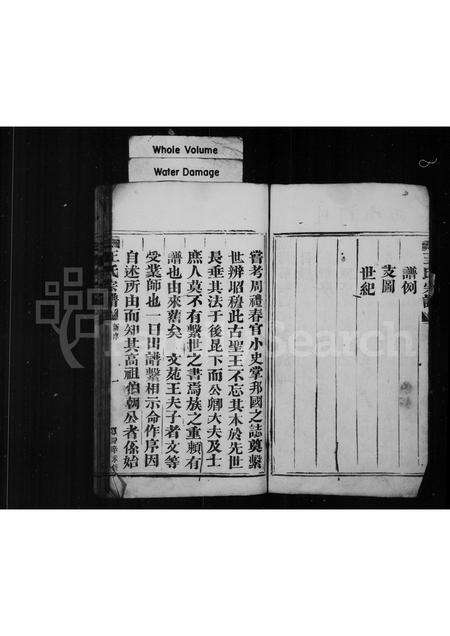 Whole Volume
Water Damage
譜例
支圖
世紀
嘗考周禮春官小史掌邦國之誌奠繫
世辨昭穆此古聖王不忘其本於先世
長垂其法于後昆下而公卿大夫及士
庶人莫不有繫世之書焉族之重賴有
譜也由來舊矣 文苑王夫子者文等
受業師也一日出譜繫相示命作序因
自述所由而知其高祖伯朝公者係始
王氏宗譜